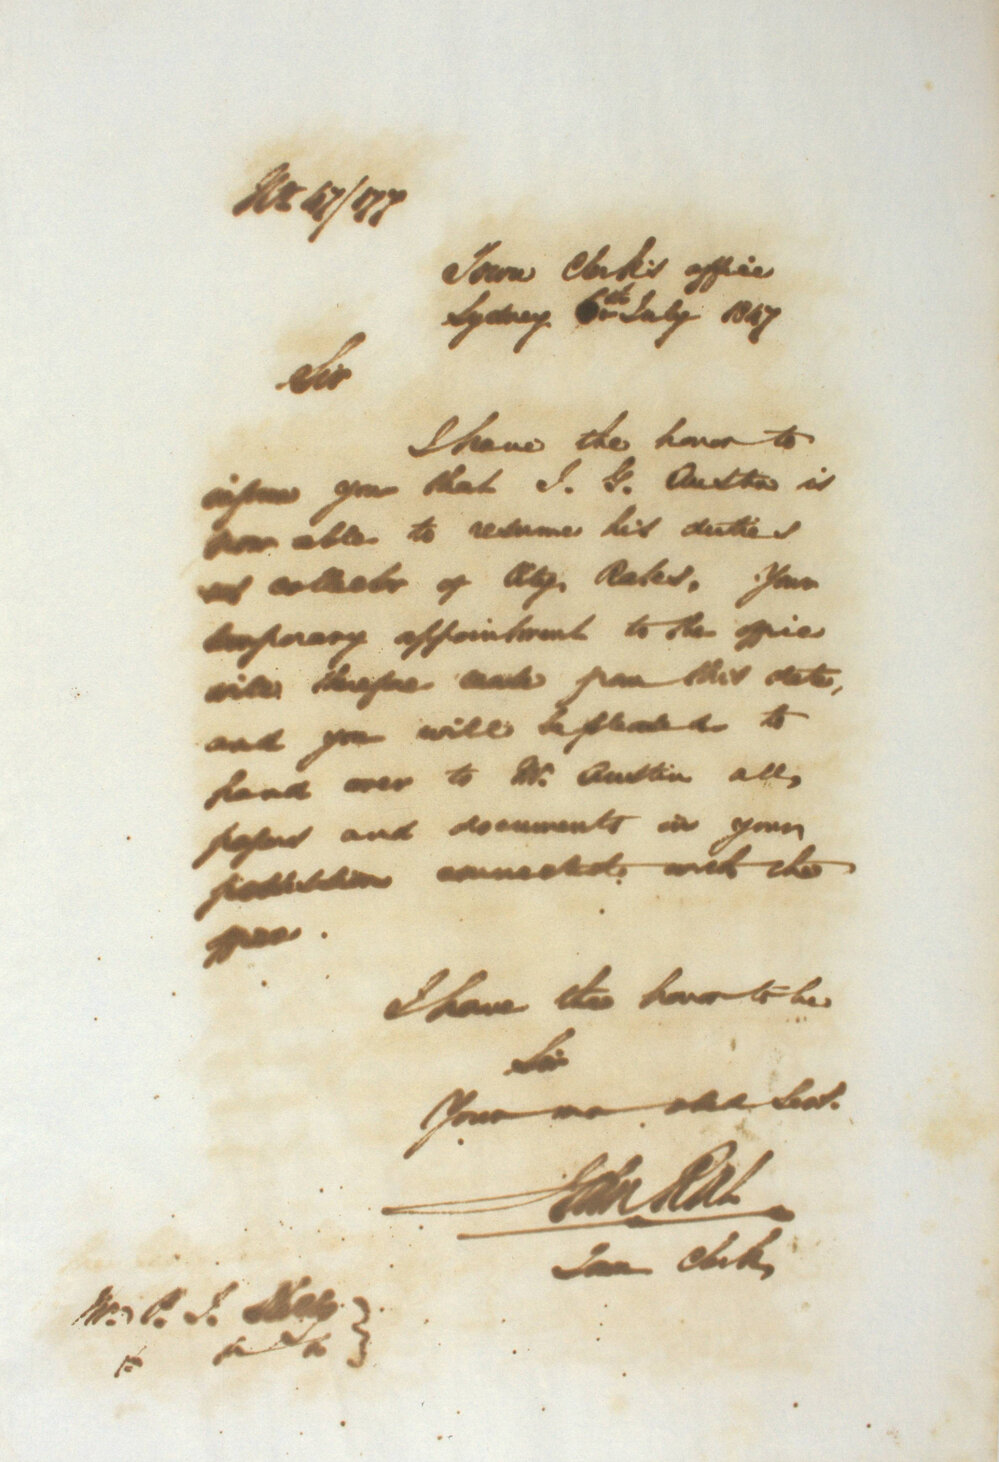 47/177
Town Clerk's office
Sydney 6th July 1847
Sir
I have the honor to
inform you that J. G. Austin is
now able to resume his duties
as collector of City Rates. Your
temporary appointment to the office
will therefore cease from this date,
and you will be pleased to
hand over to Mr. Austin all
papers and documents in your
possession connected with the
office.
I have the honor to be
Sir
Your mo obed Servt.
Town Clerk
Mr. P. J.